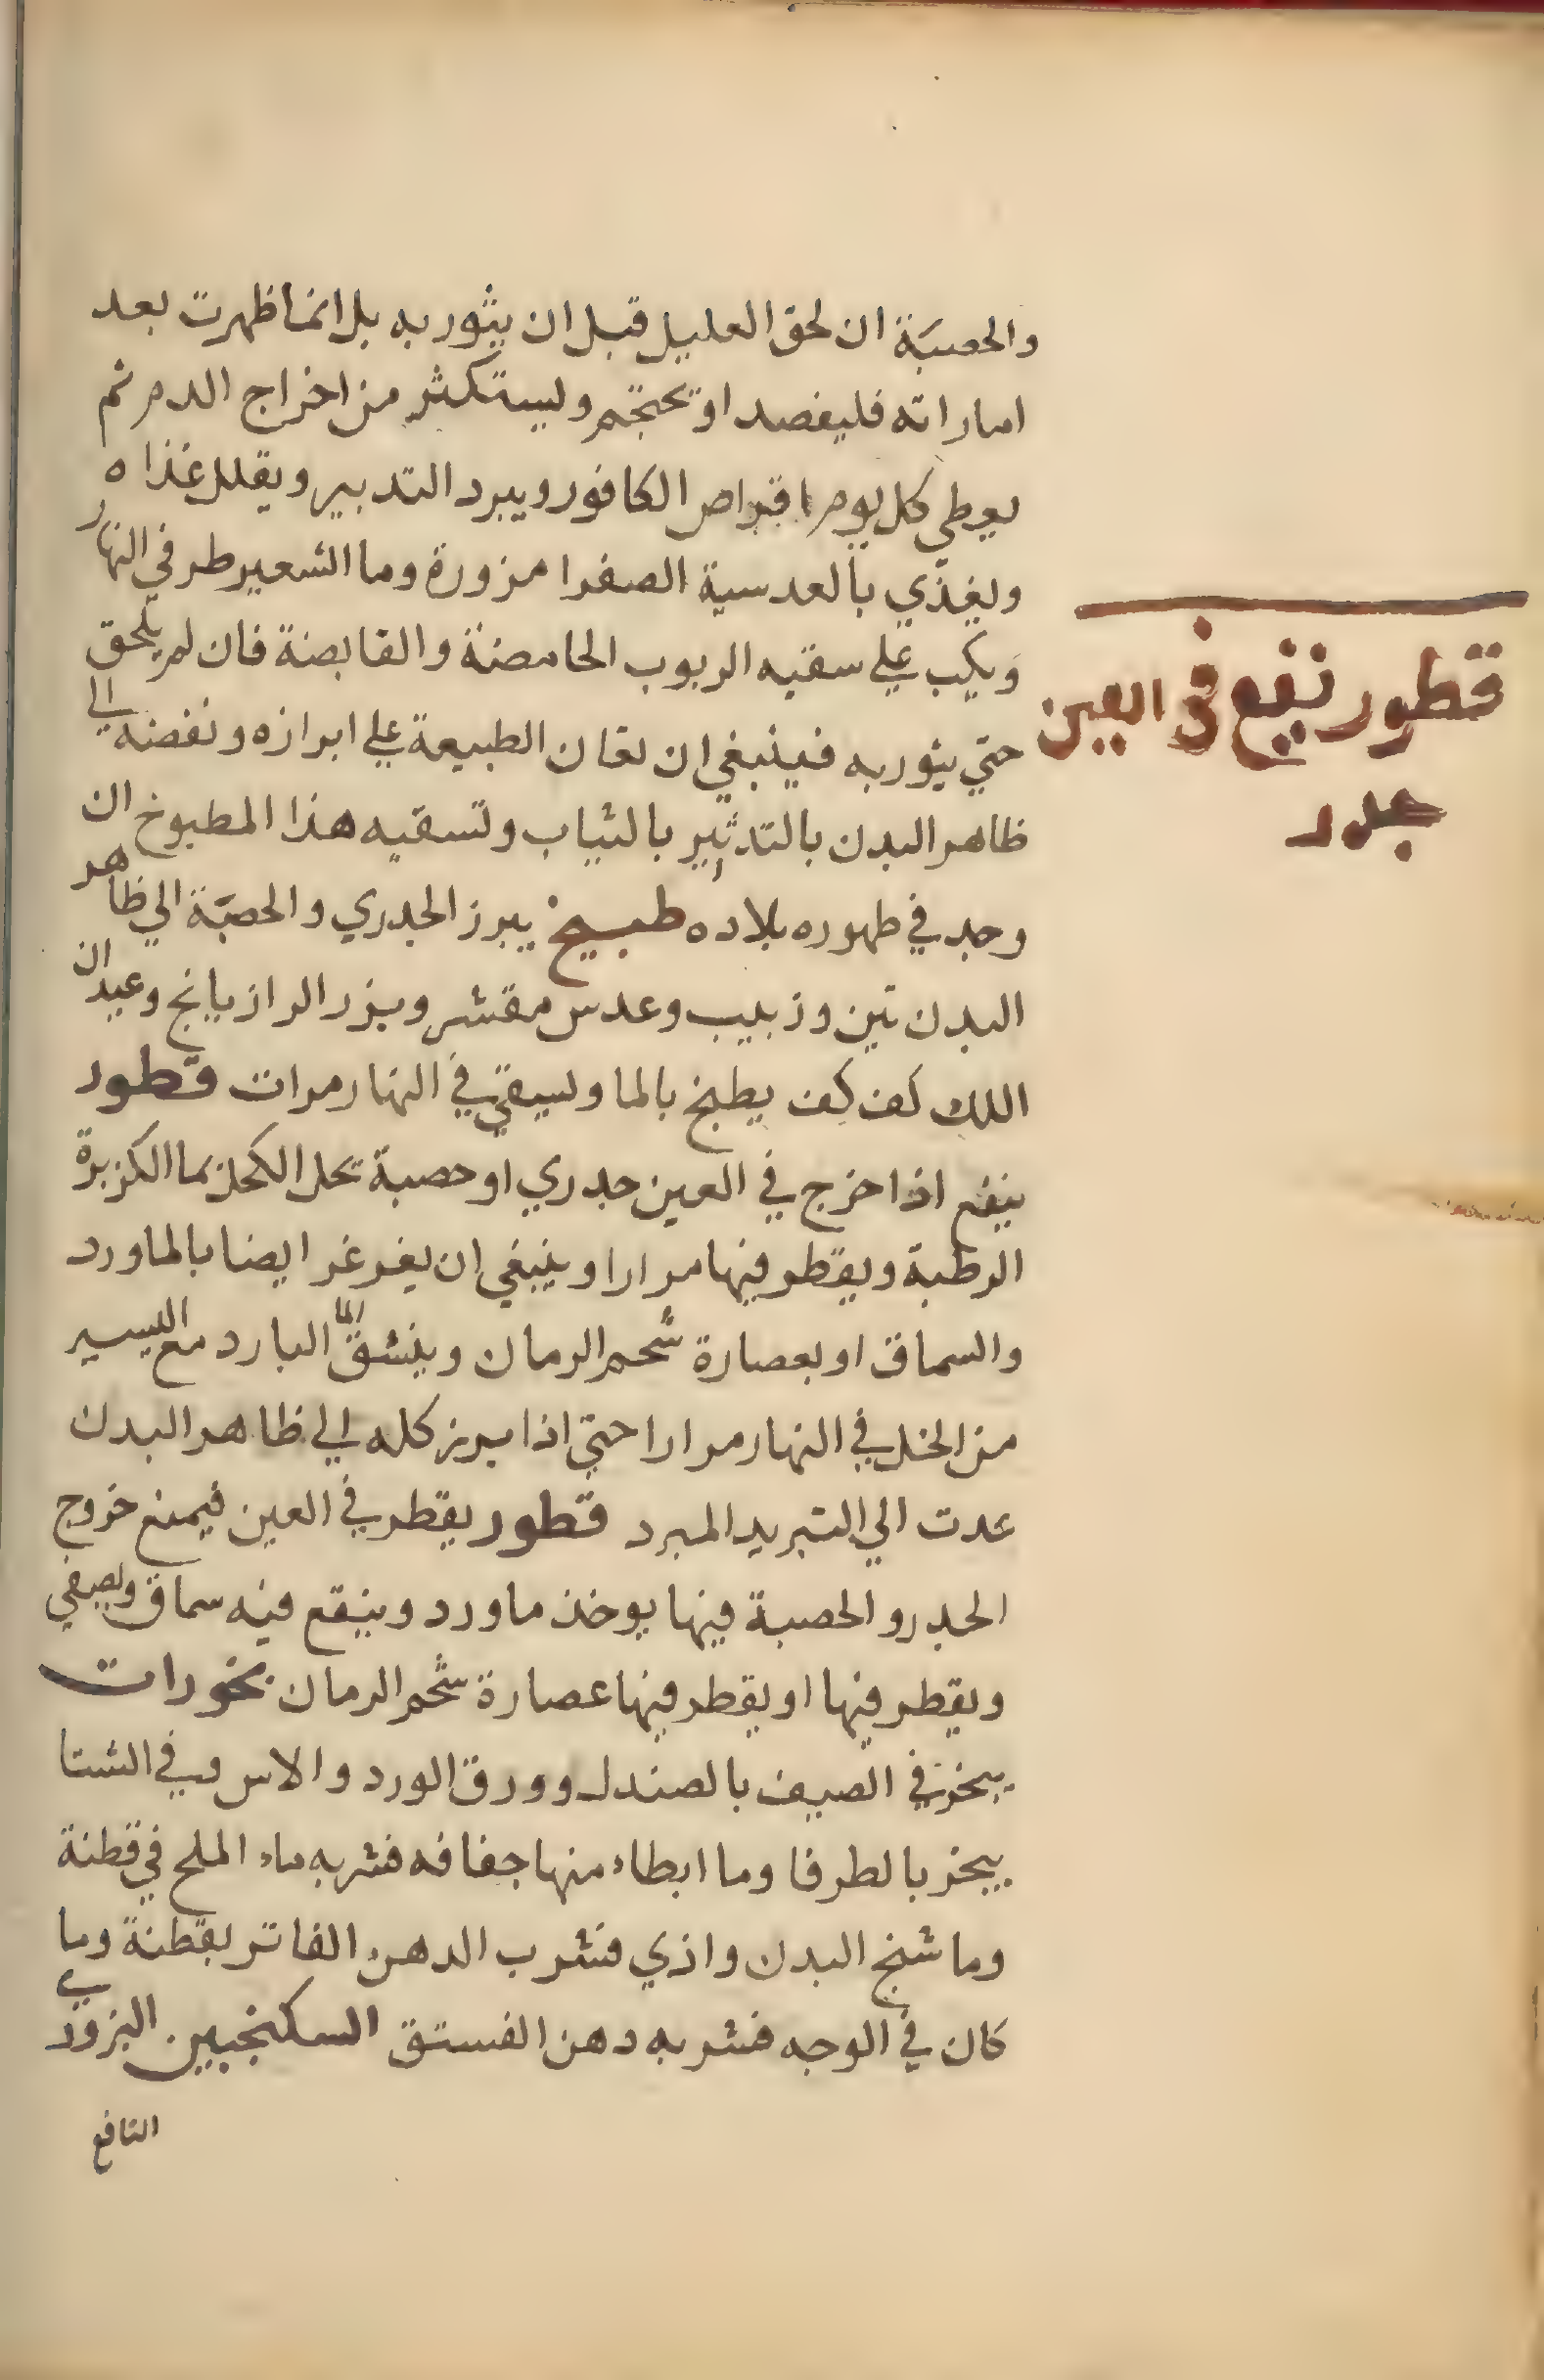 والحصبَة ان لحق العليل قبل ان يثور به بل انما ظهرت بعد
اماراته فليفصد او تحتجم وليستكثر من اخراج الدم ثم
يعطي كل يوم اقراص الكافور ويبرد التدبير ويقلل غذاه
ويغذّي بالعدسية الصفرا مزورة وما الشعير طرفي النهار
وَيكب علي سقيه الربوب الحامضة والقابضة فان لم يلحق
حتي يثور به فينبغي ان تعان الطبيعة علي ابرازه ونفضه الي
ظاهر البدن بالتدثير بالثياب وتسقيه هذا المطبوخ ان
وجد في ظهوره بلاده طبيخ يبرز الجدري والحصبَة الي ظاهر
البدن تين وزبيب وعدس مقشر وبزر الرازيانج وعيدان
اللك كف كف يطبخ بالما ويسقي في النهار مرات قطور
ينفع اذا خرج في العين جدري او حصبة تحل الكحل بما الكزبرة
الرطبة ويقطر فيها مرارا وينبغي ان يغرغر ايضا بالماورد
والسماق او بعصارة شحم الرمان وينشق الما البارد مع اليسير
من الخل في النهار مرارا حتي اذا برز كله الي ظاهر البدن
عدت الي التبريد المبرد قطور يقطر في العين فيمنع خروج
الجدرو الحصبة فيها يوخذ ماورد وينقع فيه سماق ويصفي
ويقطر فيها او يقطر فيها عصارة شحم الرمان بخورات
يبخر في الصيف بالصندل وورق الورد والاس وفي الشتا
يبخر بالطرفا وما ابطاء منها جفافه فشربه ماء الملح في قطنة
وما شنج البدن واذي فشرب الدهن الفاتر بقطنة وما
كان في الوجه فشربه دهن الفستق السكنجبين البزوري
النافع
قطور نفع في العين
جدر